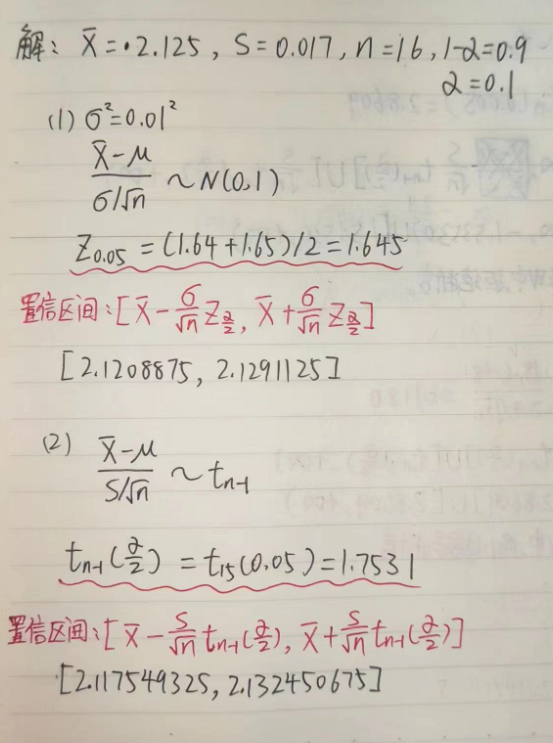 解: X̄=·2.125, S=0.017, n=16, 1-α=0.9
α=0.1
(1) σ²=0.01²
(X̄-μ)/(σ/√n) ~ N(0,1)
Z₀.₀₅ = (1.64+1.65)/2=1.645
置信区间:[X̄-σ/√n Z_{α/2}, X̄+σ/√n Z_{α/2}]
[2.1208875, 2.1291125]
(2) (X̄-μ)/(S/√n) ~ t_{n-1}
t_{n-1}(α/2) = t₁₅(0.05)=1.7531
置信区间:[X̄-S/√n t_{n-1}(α/2), X̄+S/√n t_{n-1}(α/2)]
[2.117549325, 2.132450675]